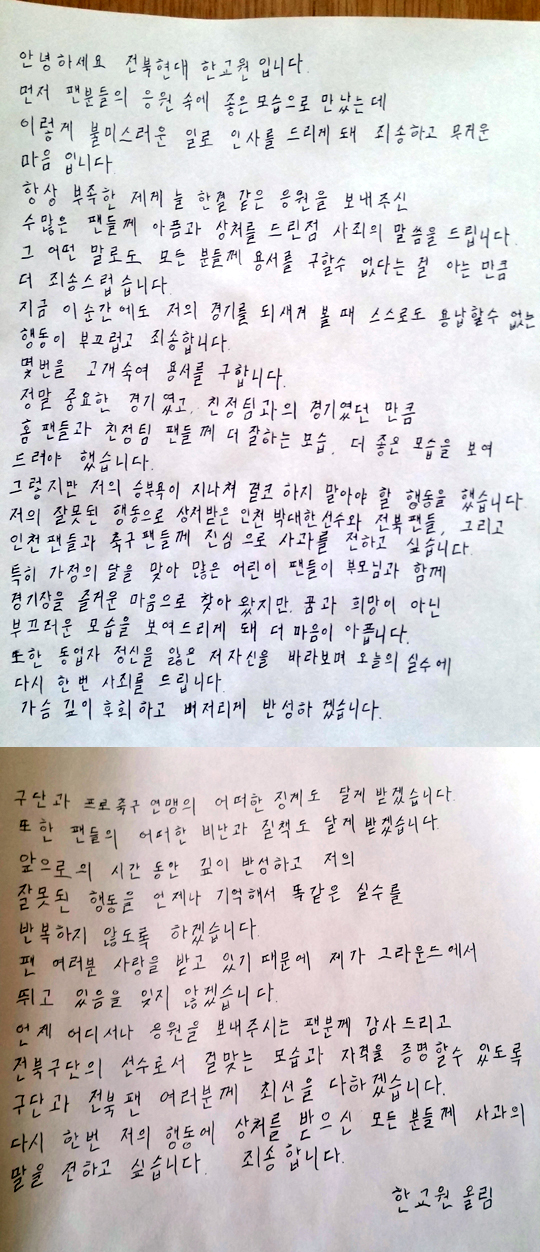 안녕하세요 전북현대 한교원 입니다.
먼저 팬분들의 응원 속에 좋은 모습으로 만났는데
이렇게 불미스러운 일로 인사를 드리게 돼 죄송하고 무거운
마음 입니다
항상 부족한 제게 늘 한결 같은 응원을 보내주신
수많은 팬들께 아픔과 상처를 드린점 사죄의 말씀을 드립니다.
그 어떤 말로도 모든 분들께 용서를 구할수 없다는 걸 아는 만큼
더 죄송스럽습니다.
지금 이순간에도 저의 경기를 되새겨 볼 때 스스로도 용납할수 없는
행동이 부끄럽고 죄송합니다.
몇번을 고개숙여 용서를 구합니다.
정말 중요한 경기였고, 친정팀과의 경기였던 만큼
홈팬들과 친정팀 팬들께 더 잘하는 모습, 더 좋은 모습을 보여
드려야 했습니다.
그렇지만 저의 승부욕이 지나쳐 결코 하지 말아야 할 행동을 했습니다.
저의 잘못된 행동으로 상처받은 인천 박대한선수와 전북팬들, 그리고
인천팬들과 축구팬들께 진심으로 사과를 전하고 싶습니다.
특히 가정의 달을 맞아 많은 어린이 팬들이 부모님과 함께
경기장을 즐거운 마음으로 찾아 왔지만, 꿈과 희망이 아닌
부끄러운 모습을 보여드리게 돼 더 마음이 아픕니다.
또한 동업자 정신을 잃은 저자신을 바라보며 오늘의 실수에
다시 한번 사죄를 드립니다.
가슴 깊이 후회하고 뼈저리게 반성하겠습니다.
구단과 프로축구 연맹의 어떠한 징계도 달게 받겠습니다.
또한 팬들의 어떠한 비난과 질책도 달게 받겠습니다.
앞으로의 시간 동안 깊이 반성하고 저의
잘못된 행동을 언제나 기억해서 똑같은 실수를
반복하지 않도록 하겠습니다.
팬 여러분 사랑을 받고 있기 때문에 제가 그라운드에서
뛰고 있음을 잊지 않겠습니다.
언제 어디서나 응원을 보내주시는 팬분께 감사드리고
전북구단의 선수로서 걸맞는 모습과 자격을 증명할수 있도록
구단과 전북팬 여러분께 최선을 다하겠습니다.
다시 한번 저의 행동에 상처를 받으신 모든 분들께 사과의
말을 전하고 싶습니다. 죄송합니다.
한교원 올림